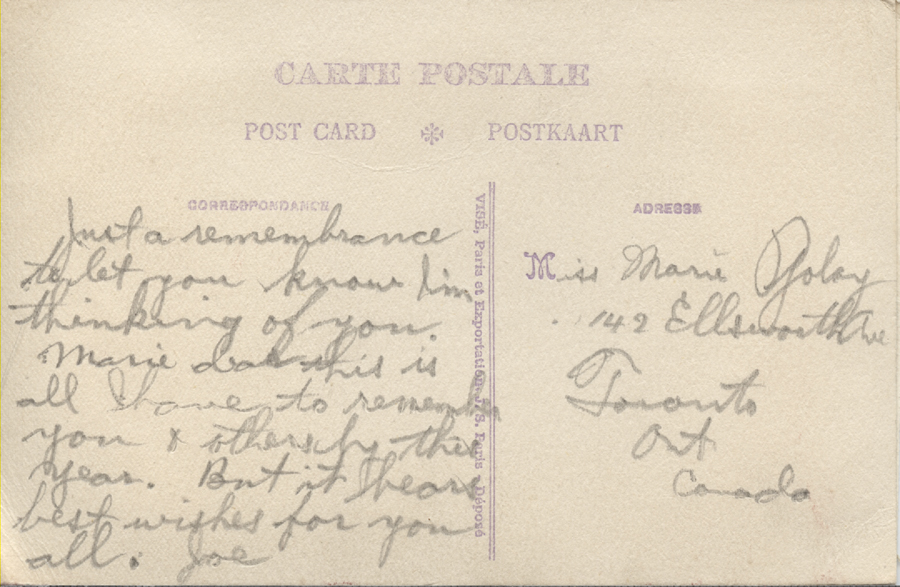 CARTE POSTALE
POST CARD POSTKAART
CORRESPONDANCE
Just a remembrance
to let you know I'm
thinking of you.
Marie dear this is
all I have to remember
you & others by this
year. But it bears
best wishes for you
all. Joe
VISÉ, Paris et Exportation. J. S. Paris - Déposé
ADRESSE
Miss Marie
142 Ellsworth Ave
Toronto
Ont
Canada